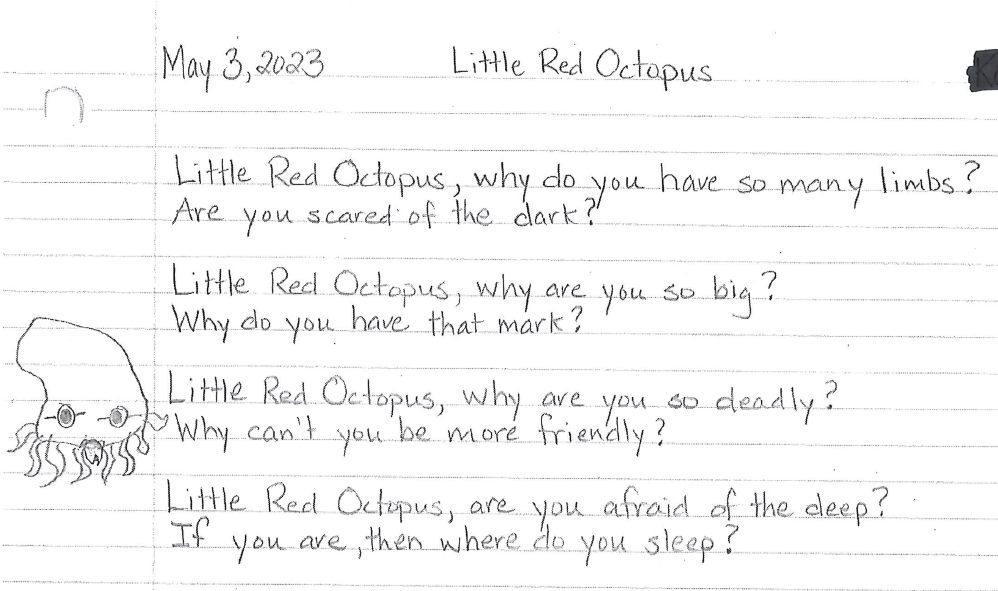 May 3, 2023 Little Red Octopus
Little Red Octopus, why do you have so many limbs?
Are you scared of the dark?
Little Red Octopus, why are you so big?
Why do you have that mark?
Little Red Octopus, why are you so deadly?
Why can't you be more friendly?
Little Red Octopus, are you afraid of the deep?
If you are, then where do you sleep?